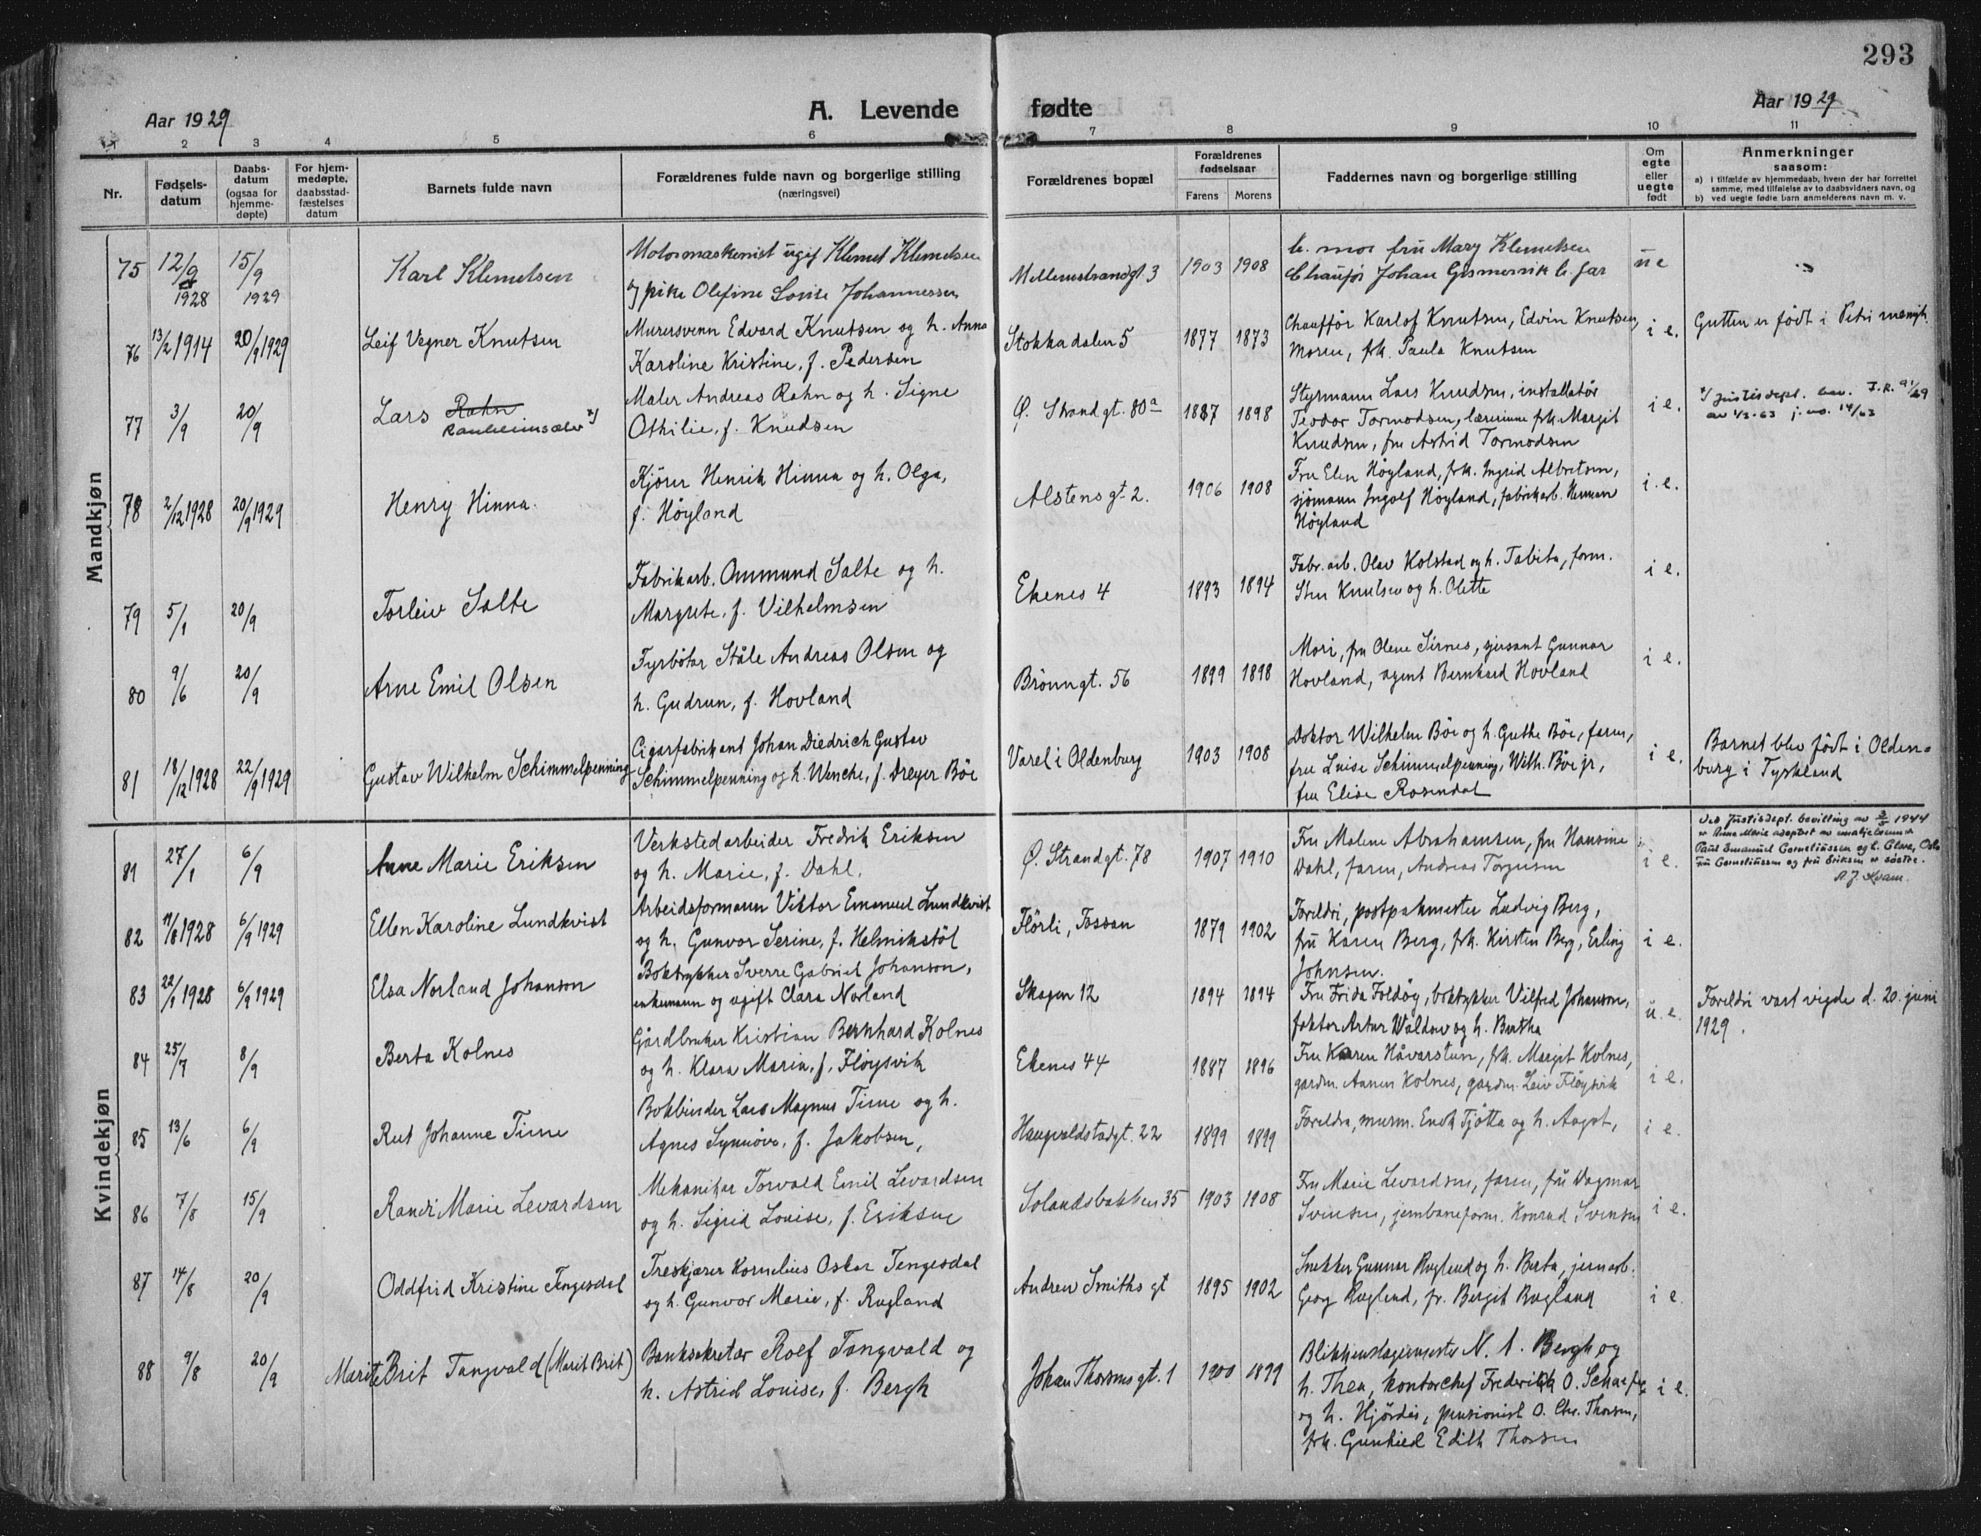 293
Aar 1929
A. Levende fødte
Aar 1929
1 2 3 4 5 6 7 8 9 10 11
Nr.
Fødsels-
datum
Daabs-
datum
(ogsaa for
hjemme-
døpte)
For hjem-
medøpte.
daabsstad-
fæstelses
datum
Barnets fulde navn
Forældrenes fulde navn og borgerlige stilling
(næringsvei)
Forældrenes bopæl
Forældrenes
fødselsaar
Farens Morens
Faddernes navn og borgerlige stilling
Om
egte
eller
uegte
født
Anmerkninger
saasom:
a) i tilfælde av hjemmedaab, hvem der har forrettet
samme, med tilføielse av to daabsvidners navn, og
b) ved uegte fødte barn anmelderens navn m. v.
Mandkjøn
75 12/9 1928 15/9 1929 Karl Klemetsen
Motormaskenist ugif Klemet Klemetsen
og pike Olefine Lovise Johannessen
Mellemstrandgt. 3 1903 1908
b. mor fru Mary Klemetsen
Chaufør Johan Gismervik b. far
u e
76 13/2 1914 20/9 1929 Leif Vegner Knutsen
Murersvenn Edvard Knutsen og h. Anna
Karoline Kristine, f. Pedersen
Stokkadalen 5 1877 1873
Chauffør Karlof Knutsen, Edvin Knutsen,
Moren, frk. Paula Knutsen
i e.
Gutten er født i Petri menigh.
77 3/9 20/9 Lars Rahn
Ranheimsæter x)
Maler Andreas Rahn og h. Signe
Othilie, f. Knudsen
Ø. Strandgt. 80a 1887 1898
Styrmann Lars Knudsen, installatør
Teodor Tormodsen, lærerinne frk. Margit
Knudsen, fru Astrid Tormodsen
i e.
x/ Justisdept. bev.
av 1/3-63 j. no. 14/63
78 2/12 1928 20/9 1929 Henry Hinna.
Kjører Henrik Hinna og h. Olga,
f. Høyland
Alstens gt 2. 1906 1908
Fru Elen Høyland, frk. Ingrid Albretsen,
sjømann Ingolf Høyland, fabrikarb. Herman
Høyland
i. e.
79 5/1 20/9 Torleiv Salte
Fabrikarb. Ommund Salte og h.
Margrete, f. Vilhelmsen
Ekenes 4 1893 1894
Fabr. arb. Olav Kolstad og h. Tabita, form.
Sten Knutsen og h. Olette
i e.
80 9/6 20/9 Arne Emil Olsen
Fyrbøter Ståle Andreas Olsen og
h. Gudrun, f. Hovland
Brønngt. 56 1899 1898
Mori, fru Olene Sirnes, sjersant Gunnar
Hovland, agent Bernhard Hovland
i e.
81 18/12 1928 22/9 1929 Gustav Wilhelm Schimmelpenning
Cigarfabrikant Johan Diedrich Gustav
Schimmelpenning og h. Wenche, f. Dreyer Bøe
Varel i Oldenburg 1903 1908
Doktor Wilhelm Bøe og h. Grethe Bøe, faren,
fru Luise Schimmelpenning, Wilh. Bøe jr,
fru Elise Rosendal
i e.
Barnet blev født i Olden-
burg i Tyskland
Kvindekjøn
81 27/1 6/9 Anne Marie Eriksen
Verkstedarbeider Fredrik Eriksen
og h. Marie, f. Dahl.
Ø. Strandgt. 78 1907 1910
Fru Malene Abrahamsen, fru Hansine
Dahl, faren, Andreas Torgersen
i e.
Ved Justisdept. bevilling av 3/5 1944
er Anne Marie adoptert av
Paul Emanuel Corneliussen og h. Clara, Oslo
Fru Corneliussen og fru Eriksen er søstre.
A. J. Kvam.
82 11/8 1928 6/9 1929 Ellen Karoline Lundkvist
Arbeidsformann Viktor Emanuel Lundkvist
og h. Gunvor Serine, f. Helmikstøl
Flørli, Fossan 1879 1902
Foreldri, postpakmester Ludvig Berg,
fru Karen Berg, frk. Kirsten Berg, Erling
Johnsen.
i e.
83 22/9 1928 6/9 1929 Elsa Norland Johanson
Boktrykker Sverre Gabriel Johanson,
enkemann og ugift Clara Norland
Skagen 12 1894 1894
Fru Frida Foldøy, boktrykker Vilfred Johanson,
faktor Artur Waldow og h. Bertha
u. e.
Foreldri vart vigde d. 20. juni
1929.
84 25/7 8/9 Berta Kolnes
Gårdbruker Kristian Bernhard Kolnes
og h. Klara Maria, f. Fløysvik
Ekenes 44 1887 1896
Fru Karen Håvarstun, frk. Margit Kolnes,
gardm. Aanen Kolnes, gardm. Leiv Fløysvik
i e.
85 13/6 6/9 Rut Johanne Time
Bokbinder Lars Magnus Time og h.
Agnes Synnøve, f. Jakobsen,
Haugvaldstadgt. 22 1899 1899
Foreldra, murm. Endr. Tjøtta og h. Aagot,
i e.
86 7/8 15/9 Randi Marie Levardsen
Mekaniker Torvald Emil Levardsen
og h. Sigrid Louise, f. Eriksen
Solandsbakken 35 1903 1908
Fru Marie Levardsen, faren, fru Dagmar
Svensen, jernbaneform. Konrad Svensen
i e.
87 14/8 20/9 Oddfrid Kristine Tengesdal
Treskjærer Kornelius Oskar Tengesdal
og h. Gunvor Marie, f. Rugland
Andrew Smiths gt 1895 1902
Snekker Gunnar Rugland og h. Berta, jernarb.
Georg Rugland, fr. Bergit Rugland
i e.
88 9/8 20/9 Marit Brit Tangvald (Marit Brit)
Banksekretær Rolf Tangvald og
h. Astrid Louise, f. Bergh
Johan Thorsens gt. 1 1900 1899
Blikkenslagermester N. A. Bergh og
h. Thea, kontorchef Frederik O. Schaefer
og h. Hjørdis, pensionist O. Chr. Thorsen,
frk. Gunhild Edith Thorsen
i e.